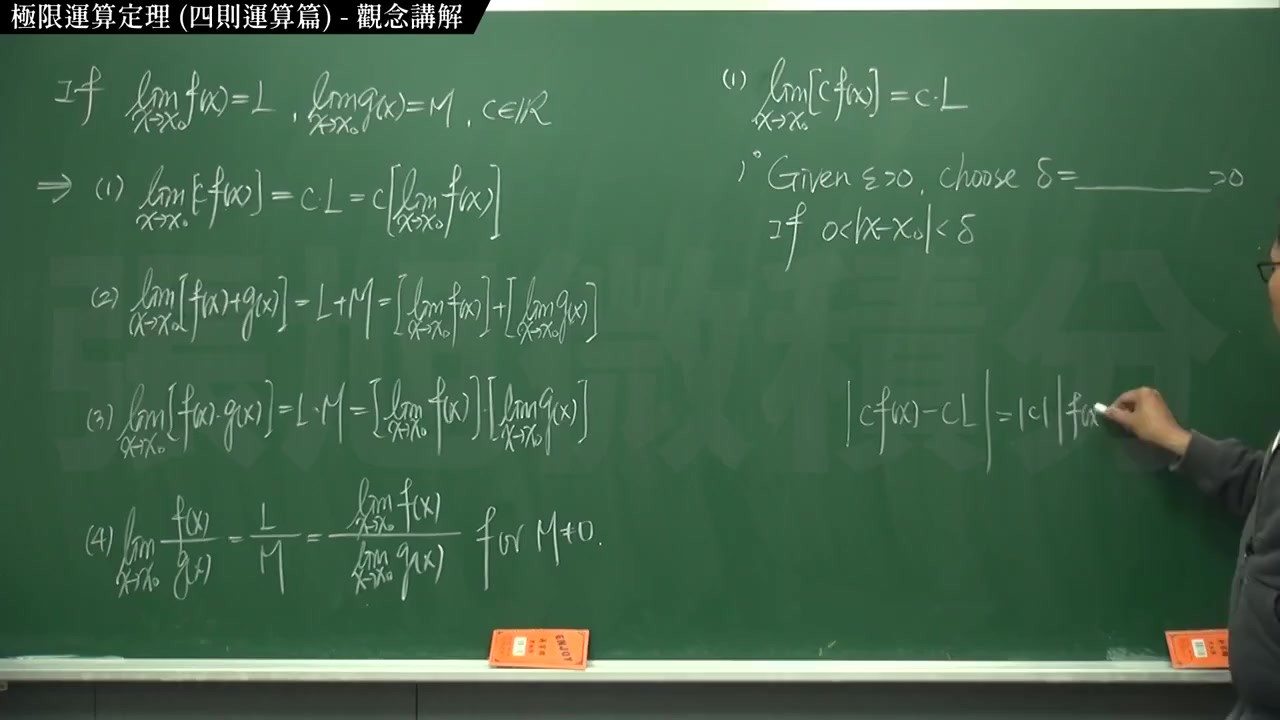 極限運算定理 (四則運算篇) - 觀念講解
If lim_{x→x₀} f(x) = L , lim_{x→x₀} g(x) = M , c∈ℝ
⇒ (1) lim_{x→x₀} [c f(x)] = c·L = c[lim_{x→x₀} f(x)]
(2) lim_{x→x₀} [f(x)+g(x)] = L+M = [lim_{x→x₀} f(x)] + [lim_{x→x₀} g(x)]
(3) lim_{x→x₀} [f(x)·g(x)] = L·M = [lim_{x→x₀} f(x)]·[lim_{x→x₀} g(x)]
(4) lim_{x→x₀} f(x)/g(x) = L/M = lim_{x→x₀} f(x) / lim_{x→x₀} g(x) for M≠0.
(1) lim_{x→x₀} [c f(x)] = c·L
1° Given ε>0, choose δ=________>0
If 0<|x-x₀|<δ
|cf(x)-cL| = |c||f(x
張旭微積分
ENJOY